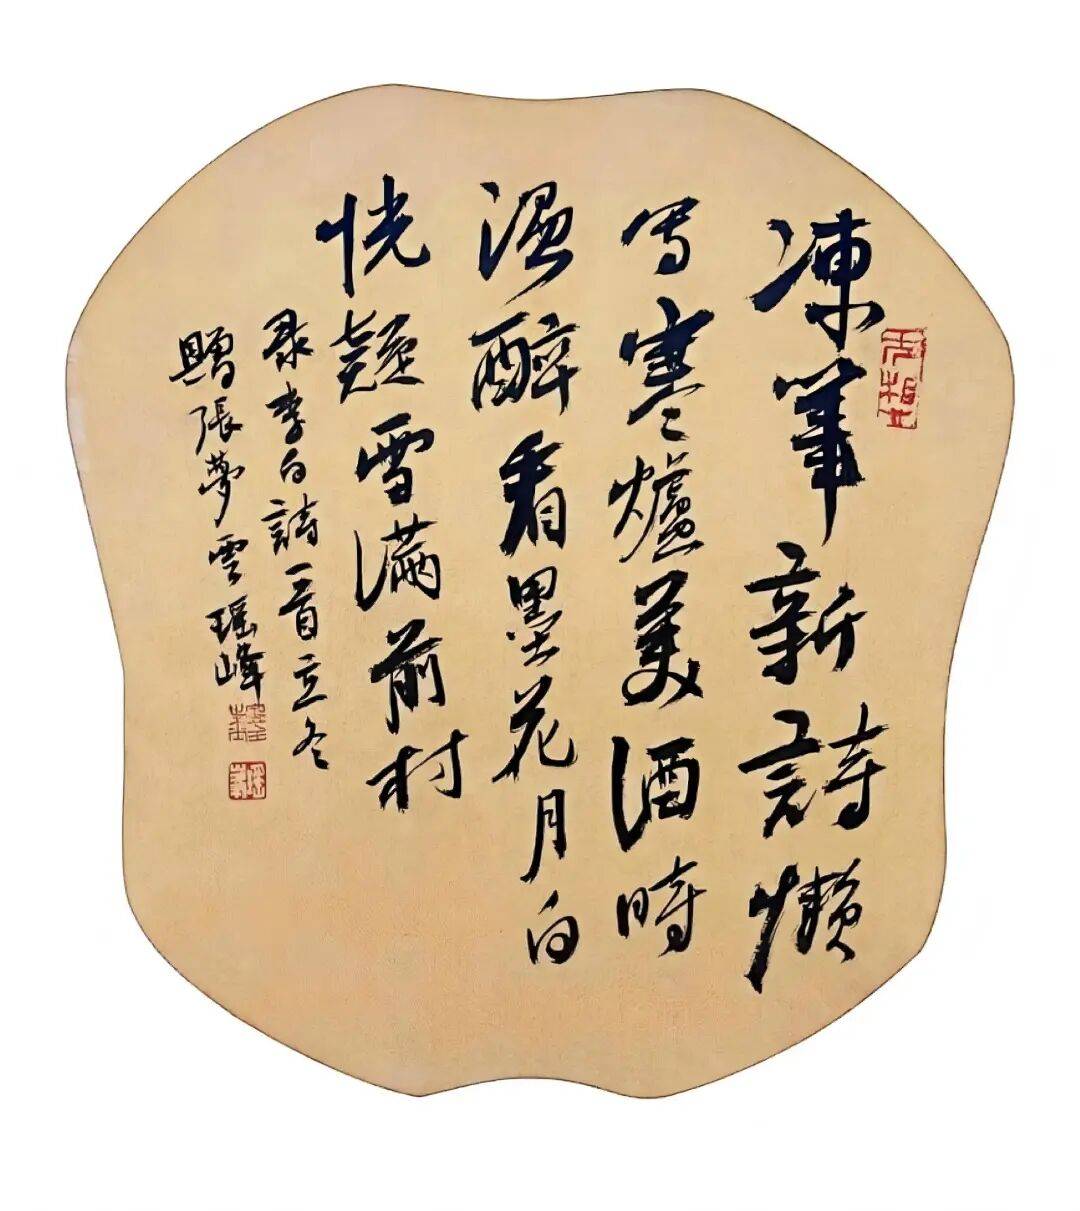 凍筆新詩懶
寫寒爐美酒時
溫醉看墨花月白
恍疑雪滿前村
录李白詩一首立冬
贈張夢雲瑶峰